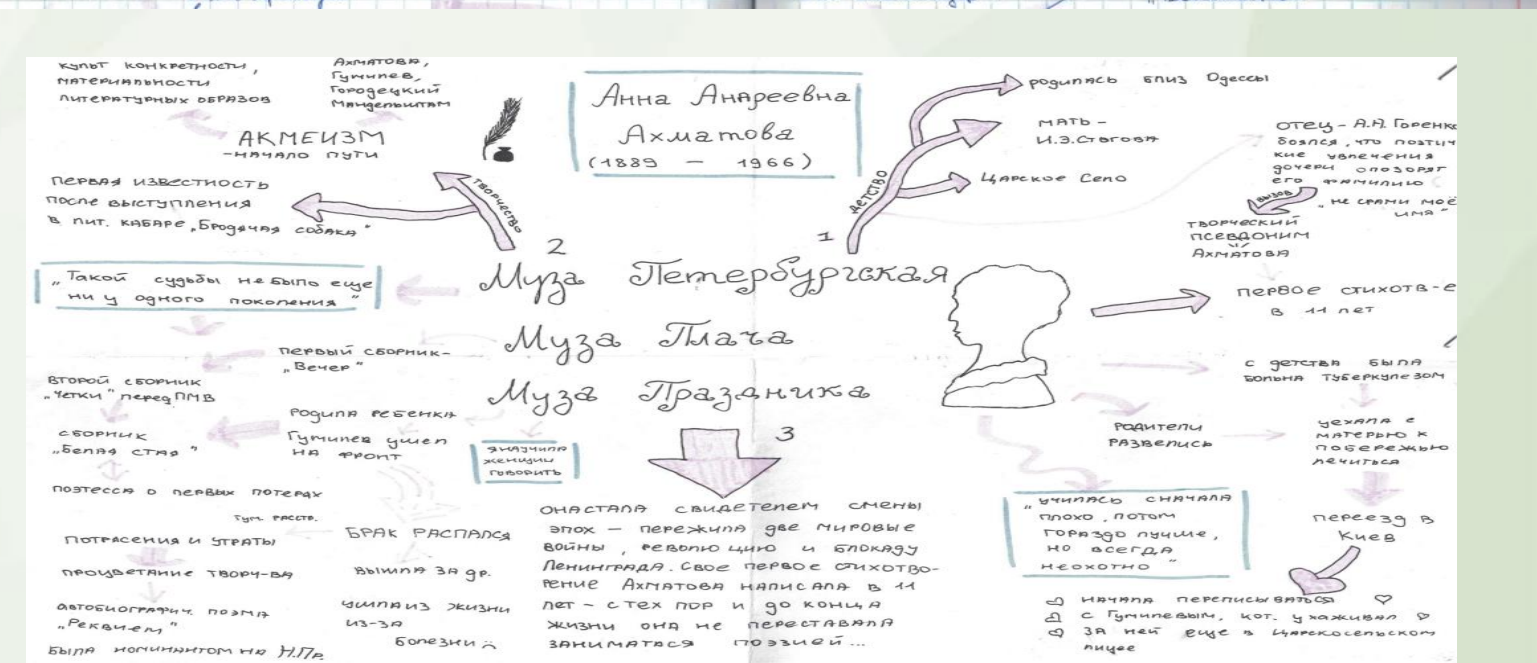 Анна Андреевна
Ахматова
(1889 – 1966)
культ конкретности,
материальности
литературных образов
Ахматова,
Гумилев,
Городецкий
Мандельштам
АКМЕИЗМ
-начало пути
ТВОРЧЕСТВО
2
первая известность
после выступления
в лит. кабаре „Бродячая собака"
„Такой судьбы не было еще
ни у одного поколения"
первый сборник-
„Вечер"
второй сборник
„Четки" перед ПМВ
Родила ребенка
Гумилев ушел
на фронт
сборник
„Белая стая"
поэтесса о первых потерях
Гум. расстр.
потрясения и утраты
БРАК РАСПАЛСЯ
процветание творч-ва
вышла за др.
автобиографич. поэма
„Реквием"
ушла из жизни
из-за
болезни
была номинантом на Н.Пр.
Муза Петербургская
Муза Плача
Муза Праздника
я научила
женщин
говорить
3
она стала свидетелем смены
эпох – пережила две мировые
войны, революцию и блокаду
Ленинграда. Свое первое стихотво-
рение Ахматова написала в 11
лет – с тех пор и до конца
жизни она не переставала
заниматся поэзией...
1
ДЕТСТВО
родилась близ Одессы
мать -
И.Э.Стогова
Царское Село
отец - А.А. Горенко
боялся, что поэтич
кие увлечения
дочери опозорят
его фамилию
„не срами моё
имя"
вызов
творческий
псевдоним
Ахматова
первое стихотв-е
в 11 лет
с детства была
больна туберкулезом
родители
развелись
уехала с
матерью к
побережью
лечиться
„училась сначала
плохо, потом
гораздо лучше,
но всегда
неохотно"
переезд в
Киев
начала переписываться
с Гумилевым, кот. ухаживал
за ней еще в Царскосельском
лицее